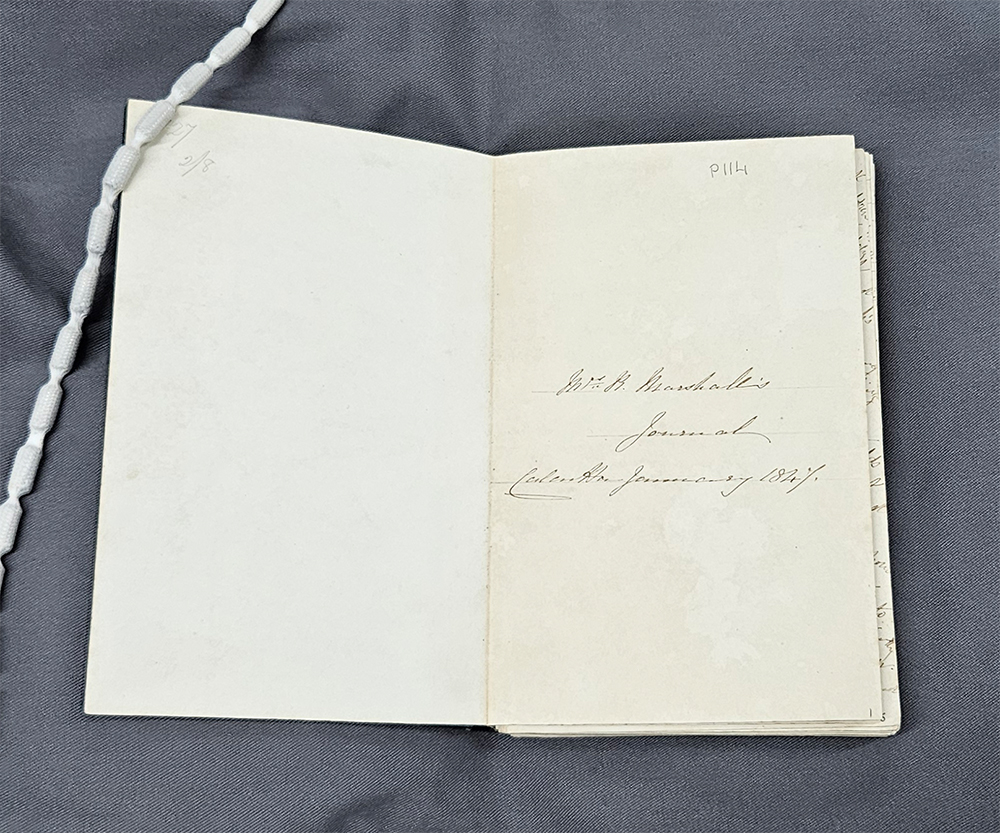 2/8
P114
Mrs. B. Marshall's
Journal
Calcutta January 1847.